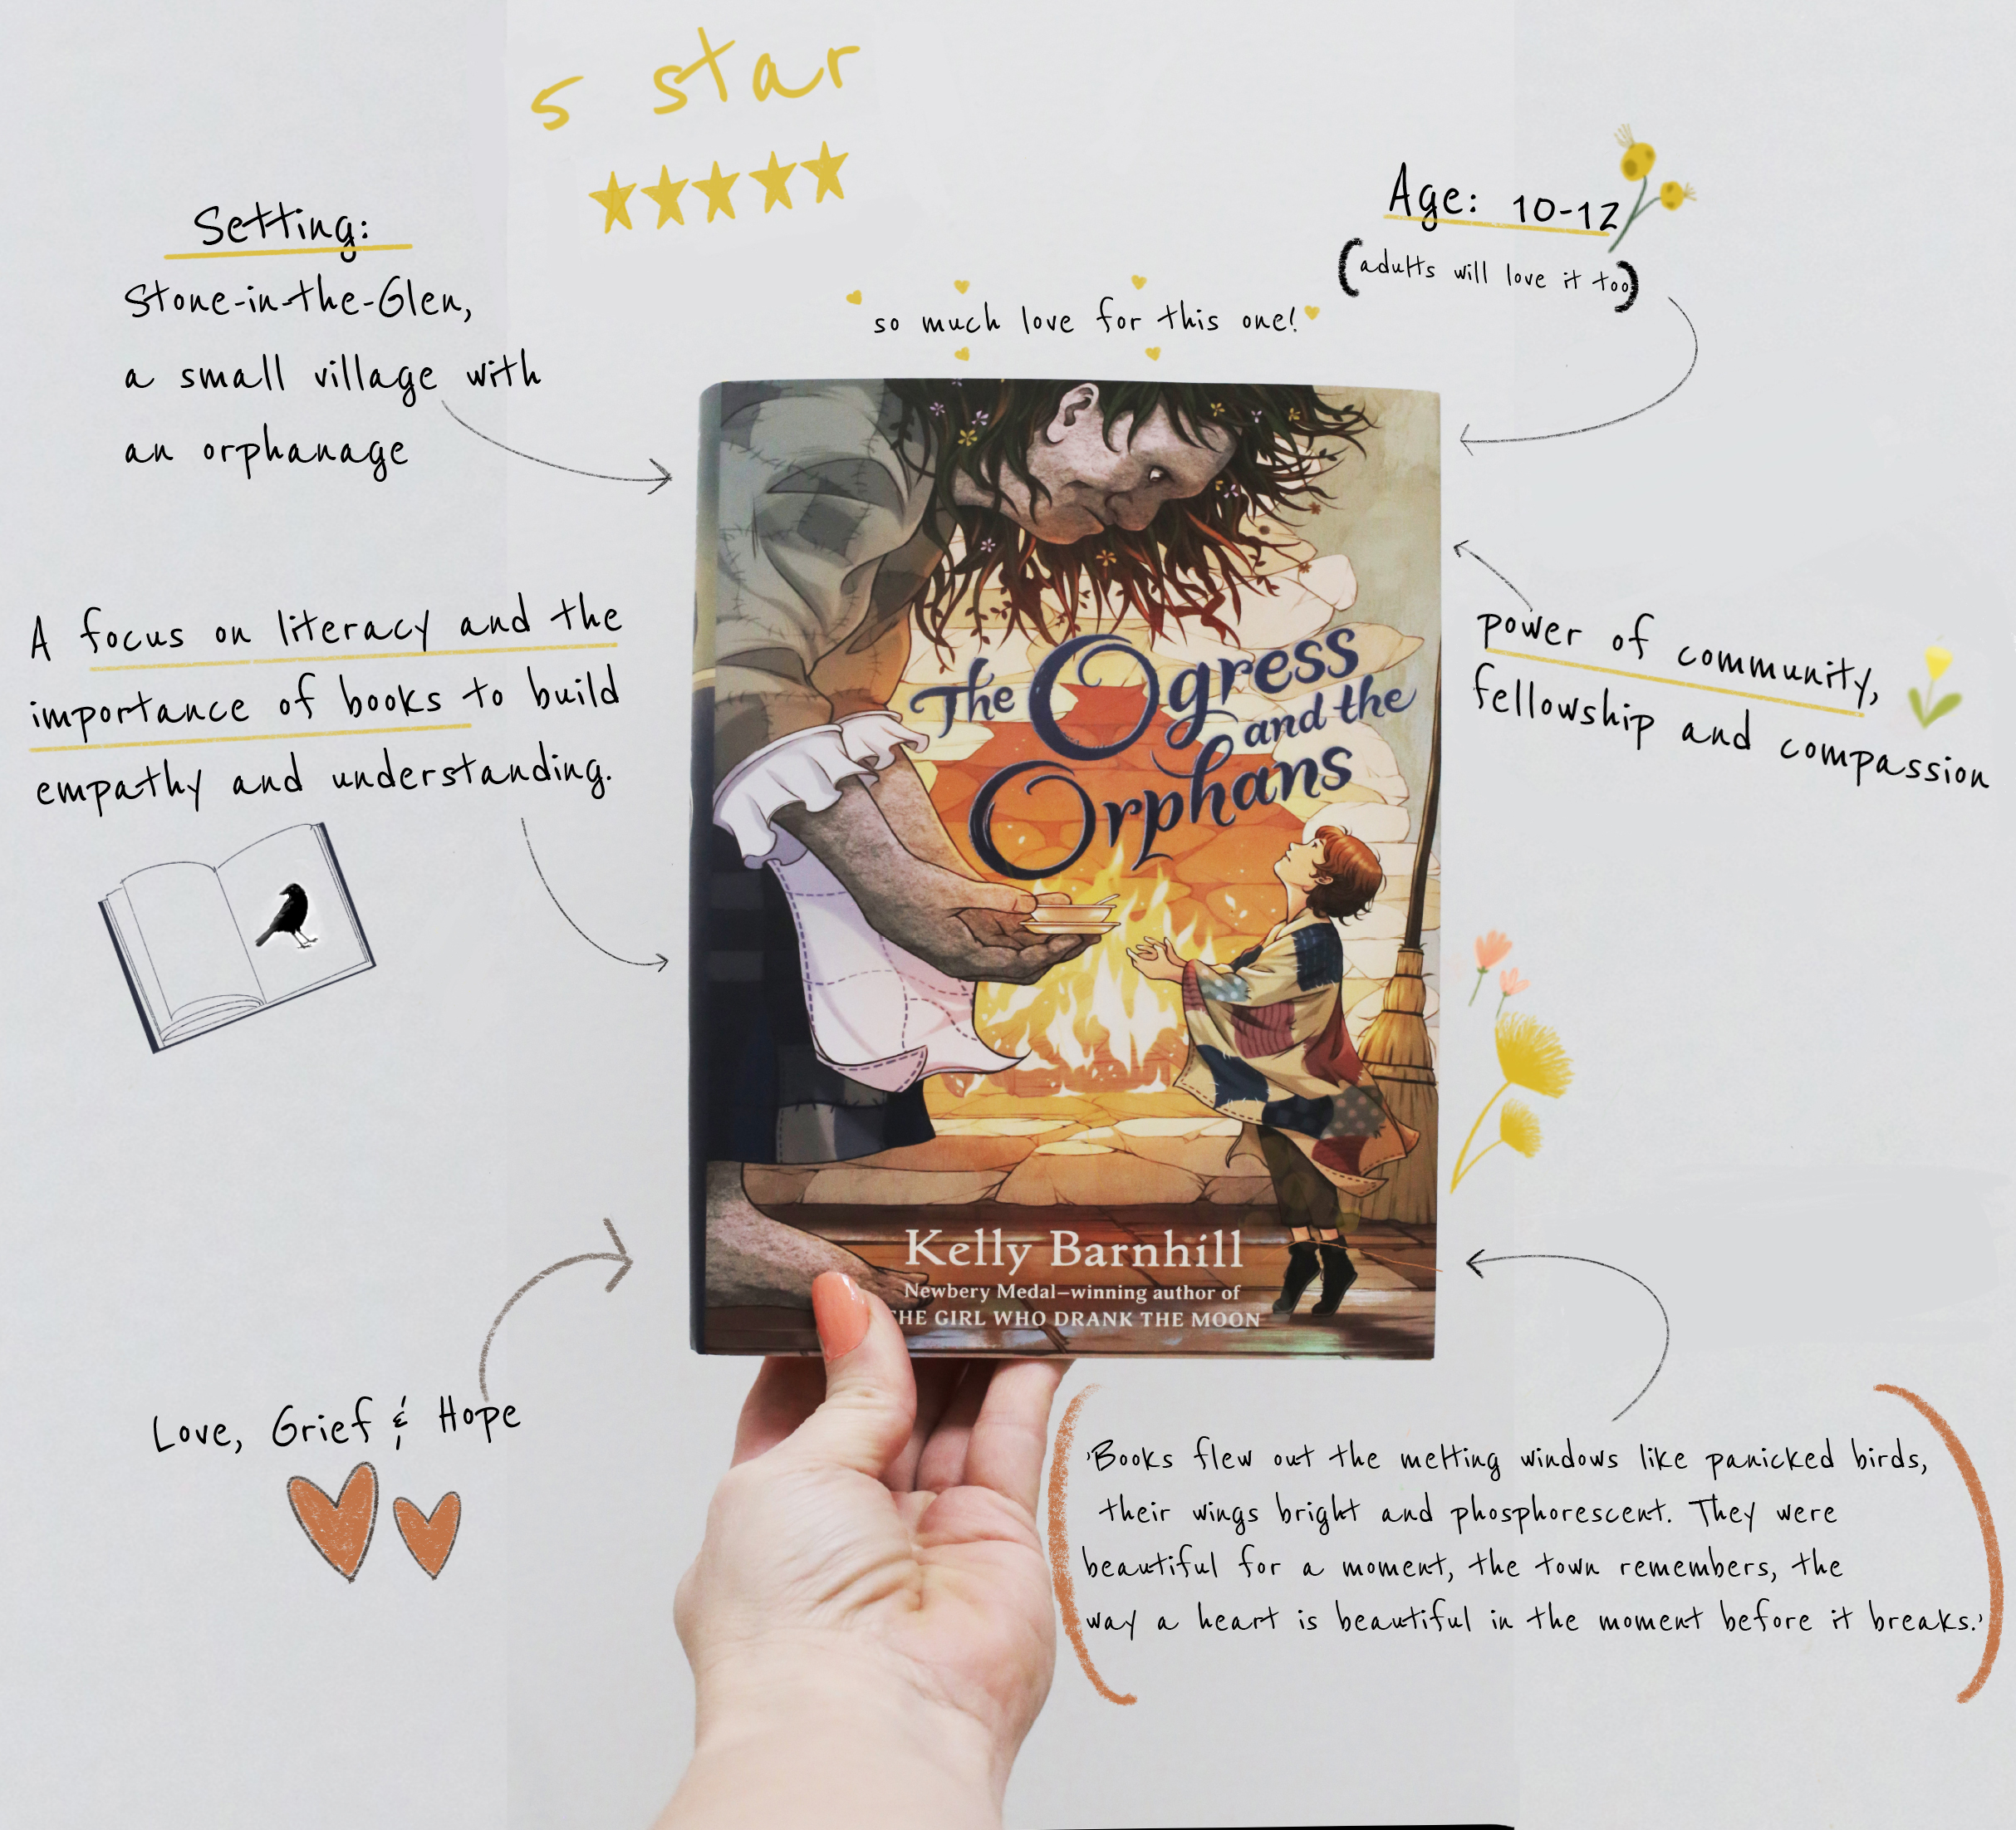 5 star
Setting:
Stone-in-the-Glen,
a small village with
an orphanage
Age: 10-12
(adults will love it too)
so much love for this one!
A focus on literacy and the
importance of books to build
empathy and understanding.
power of community,
fellowship and compassion
The Ogress
and the
Orphans
Kelly Barnhill
Newbery Medal–winning author of
HE GIRL WHO DRANK THE MOON
Love, Grief & Hope
'Books flew out the melting windows like panicked birds,
their wings bright and phosphorescent. They were
beautiful for a moment, the town remembers, the
way a heart is beautiful in the moment before it breaks.'